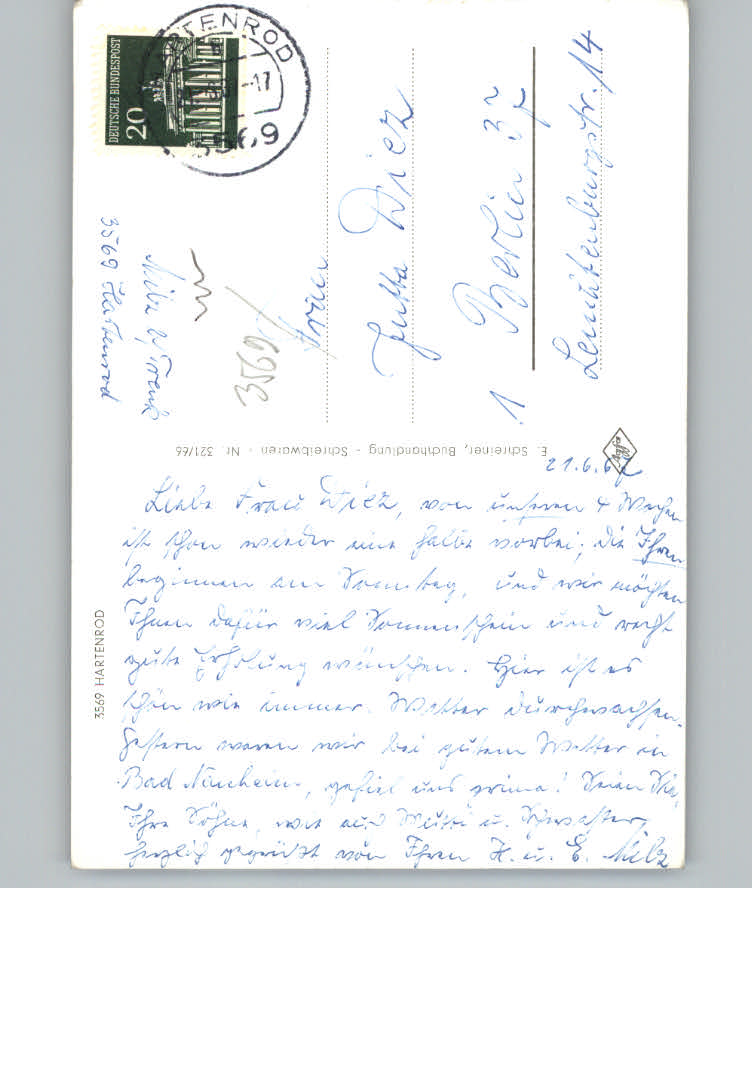 DEUTSCHE BUNDESPOST
20
HARTENROD
-17
3569
Milz
3569 Hartenrod
3569
Frau
Jutta Diez
1 Berlin 37
Leuchtenburgstr. 14
E. Schreiner, Buchhandlung - Schreibwaren - Nr. 321/66
Agfa
3569 HARTENROD
21.6.67
Liebe Frau Diez, von unseren 4 Wochen
ist schon wieder eine halbe vorbei; die Ihren
beginnen am Sonntag, und wir möchten
Ihnen dafür viel Sonnenschein und recht
gute Erholung wünschen. Hier ist es
schön wie immer. Wetter durchwachsen.
Gestern waren wir bei gutem Wetter in
Bad Nauheim, gefiel uns prima! Seien Sie,
Ihre Söhne, wie auch Mutti u. Schwester
herzlich gegrüßt von Ihren H. u. E. Milz